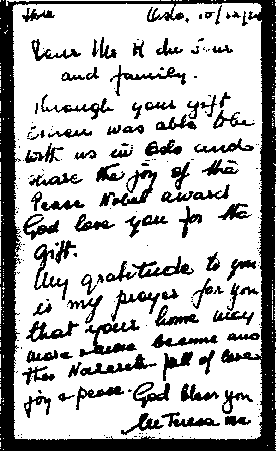 Oslo, 10/12/
Dear Mr
and family.
Through your gift
was able to be
with us in Oslo and
share the joy of the
Peace Nobel award
God love you for the
gift.
My gratitude to you
is my prayer for you
that your home may
more become ano
ther Nazareth full of love
joy & peace. God bless you
M Teresa mc